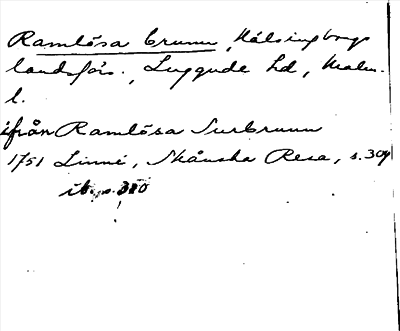 Ramlösa brunn, Hälsingborgs
landsförs., Luggude hd, Malm.
l.
ifrån Ramlösa Surbrunn
1751 Linné, Skånska Resa, s. 309
ib. s. 310